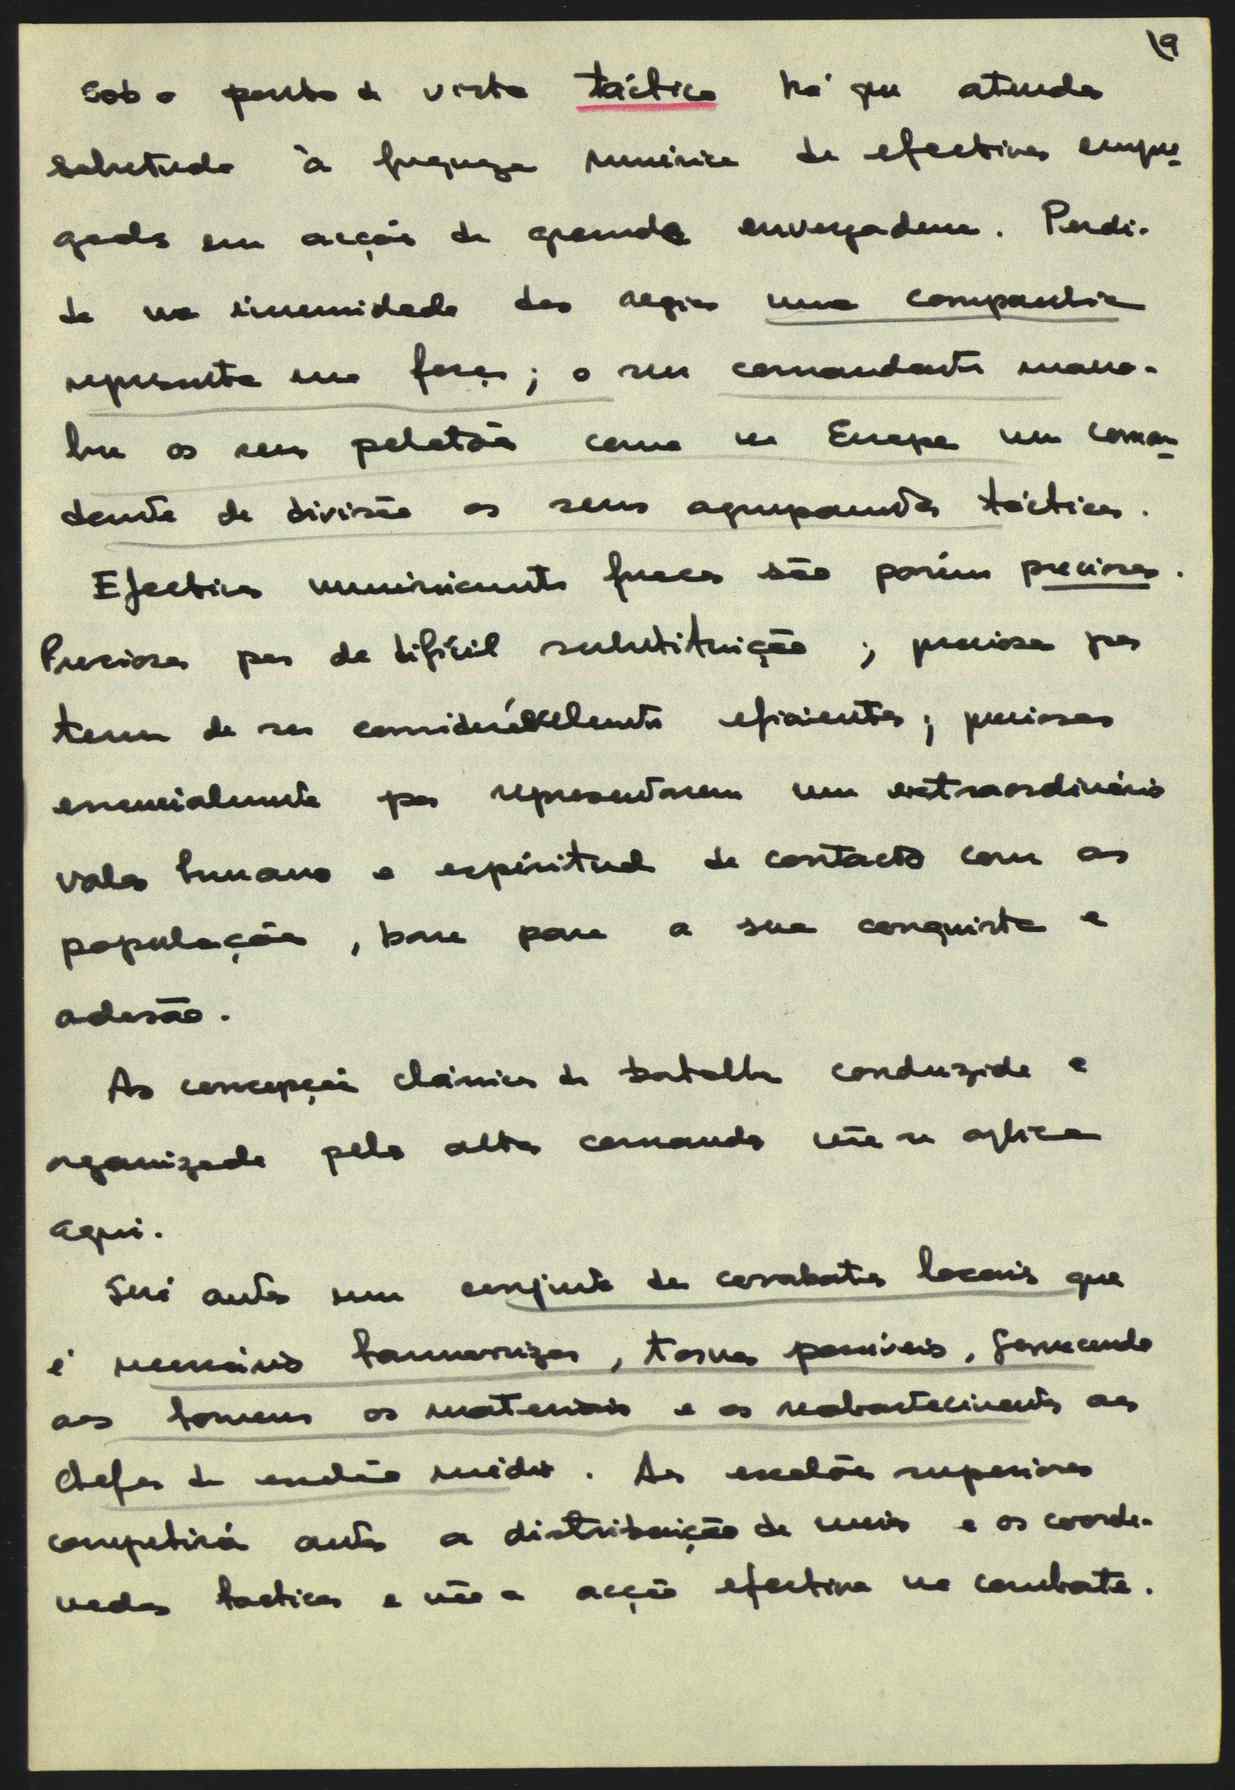 19
Sob o ponto de vista táctico há que atender
sobretudo à fraqueza numérica de efectivos empre-
gados em acções de grande envergadura. Perdi-
da na imensidade das regiões uma companhia
representa uma força; o seu comandante mano-
bra os seus pelotões como na Europa um coman-
dante de divisão os seus agrupamentos tácticos.
Efectivos numericamente fracos são porém preciosos.
Preciosos por de difícil substituição; preciosos por
terem de ser consideravelmente eficientes; preciosos
essencialmente por representarem um extraordinário
valor humano e espiritual de contacto com as
populações, base para a sua conquista e
adesão.
As concepções clássicas de batalha conduzida e
organizada pelo alto comando não se aplica
aqui.
Será antes um conjunto de combates locais que
é necessário harmonizar, tornar possíveis, fornecendo
aos homens os materiais e os reabastecimentos aos
chefes de escalão médio. Aos escalões superiores
competirá antes a distribuição de meios e os coorde-
nadas tacticas e não a acção efectiva no combate.